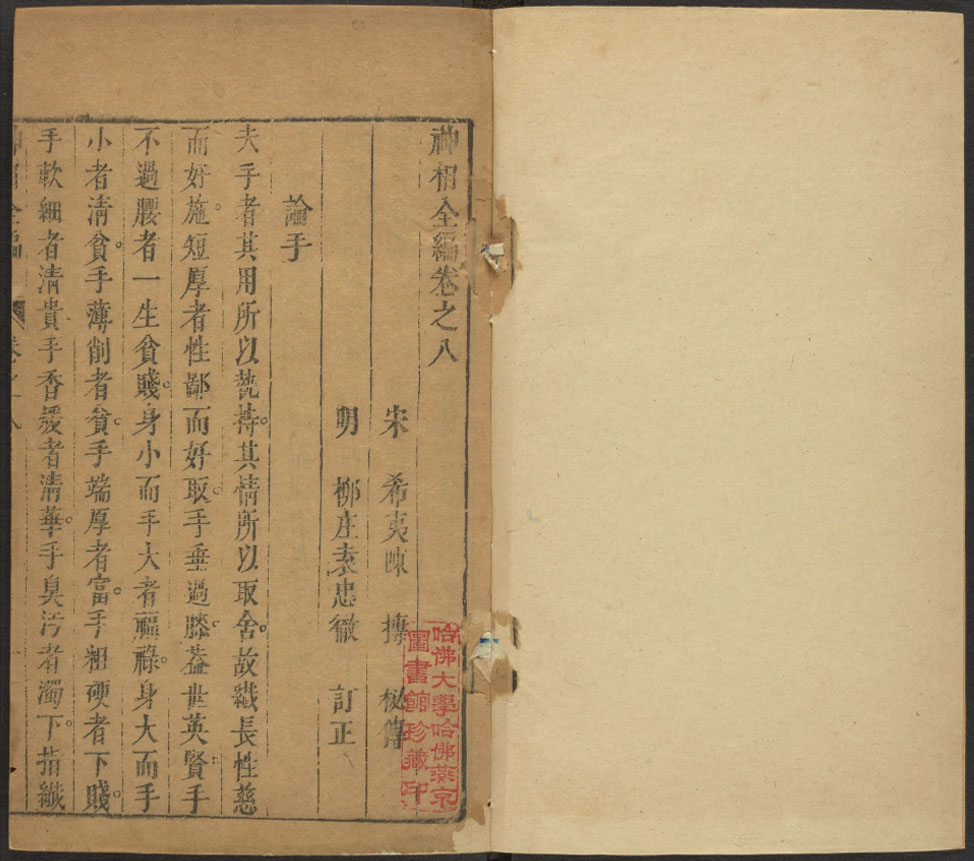 神相全編卷之八
宋 希夷陳 摶 秘傳
明 柳庄袁忠徹 訂正
論手
夫手者其用所以執持。其情所以取舍。故纖長性慈
而好施。短厚者性鄙而好取。手垂過膝。蓋世英賢。手
不過腰者一生貧賤。身小而手大者福祿。身大而手
小者清貧。手薄削者貧。手端厚者富。手粗硬者下賤。
手軟細者清貴手香滑者清華。手臭汙者濁下。指纖
神相全編 卷之八
哈佛大學哈佛燕京
圖書館珍藏印